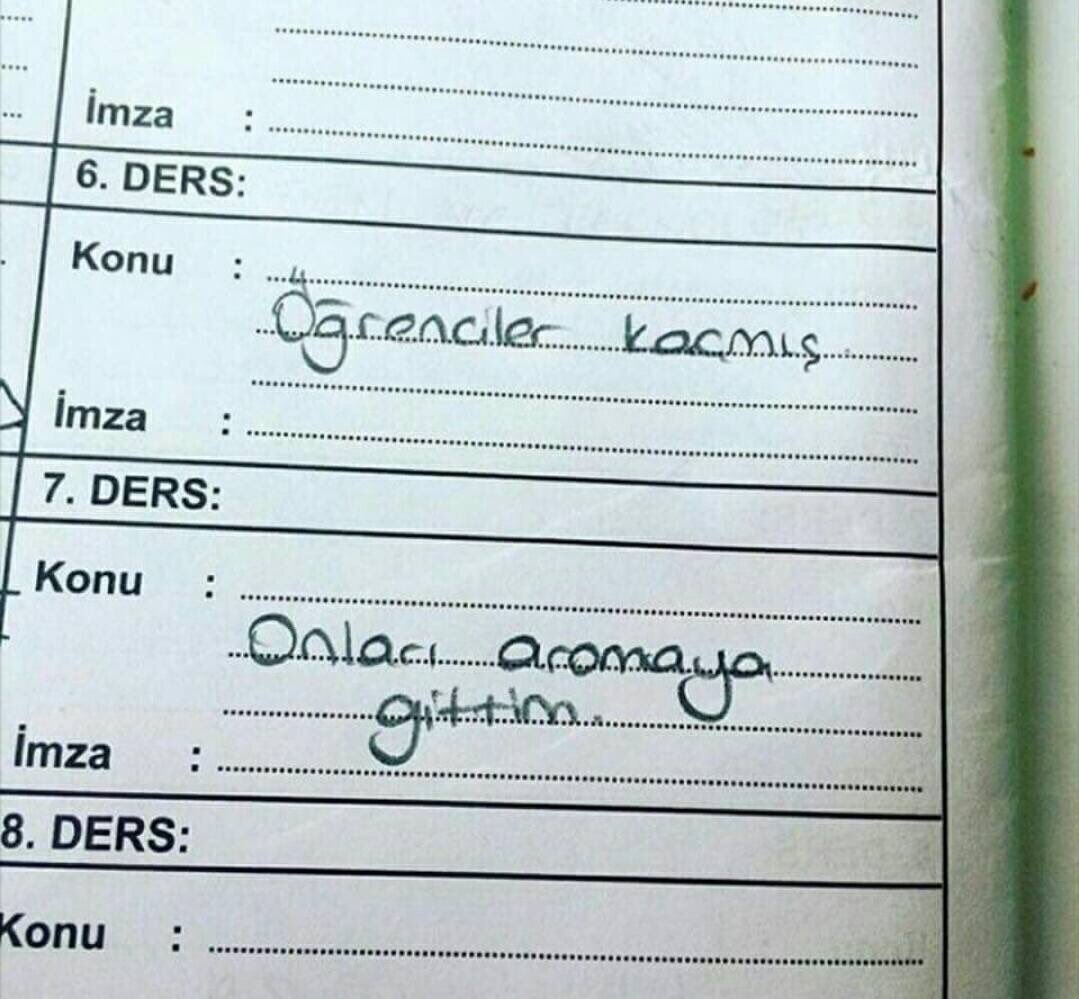 İmza :
6. DERS:
Konu :
Öğrenciler kaçmış.
İmza :
7. DERS:
Konu :
Onları aramaya
gittim.
İmza :
8. DERS:
Konu :